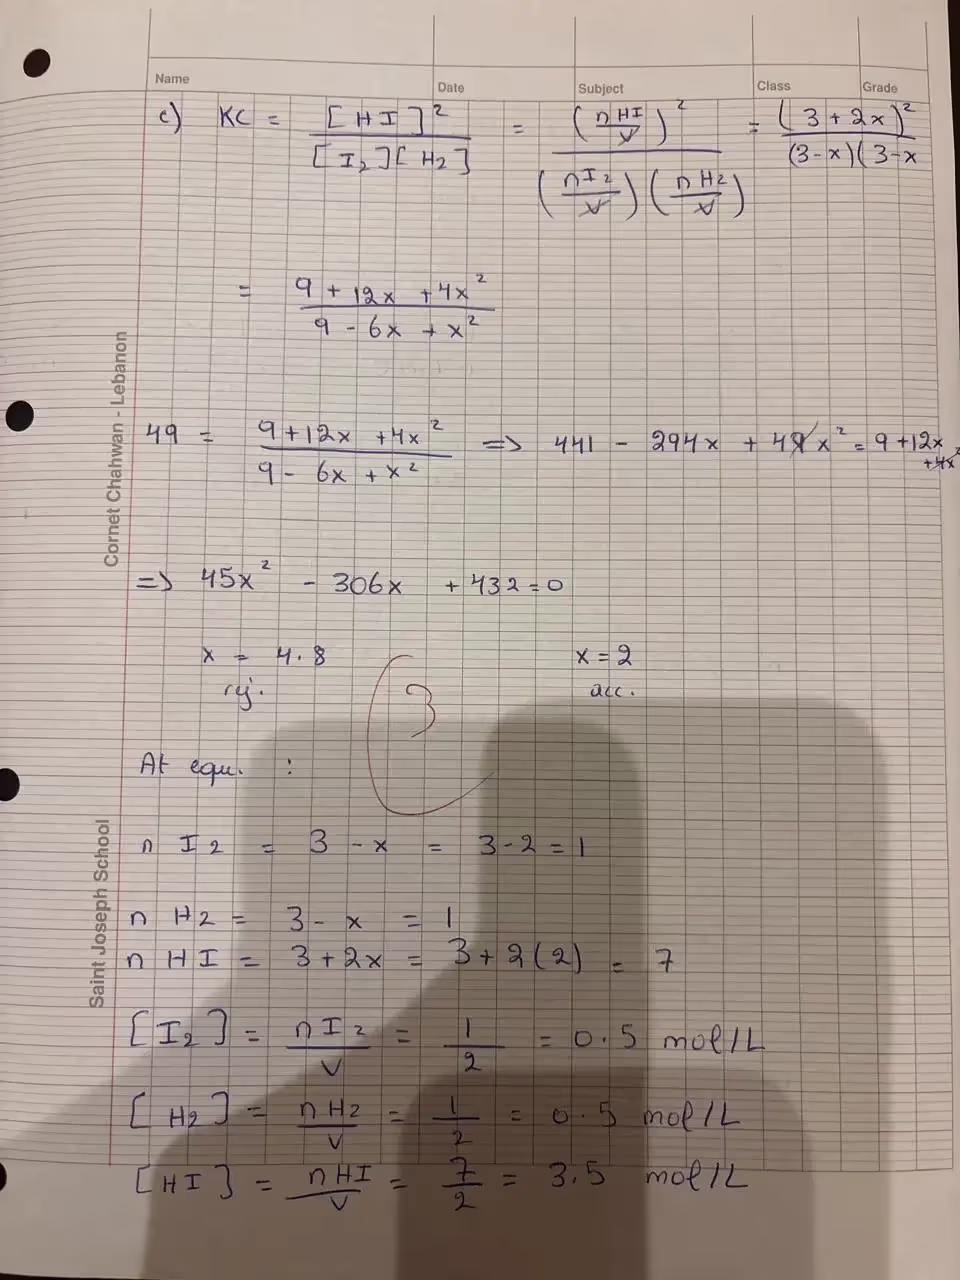 Name Date Subject Class Grade
c) KC = [HI]² / [I₂][H₂] = (nHI/V)² / (nI₂/V)(nH₂/V) = (3 + 2x)² / (3-x)(3-x
= 9 + 12x + 4x² / 9 - 6x + x²
49 = 9 + 12x + 4x² / 9 - 6x + x² => 441 - 294x + 49x² = 9 + 12x + 4x²
=> 45x² - 306x + 432 = 0
x = 4.8 x = 2
rej. acc.
3
At equ. :
n I₂ = 3 - x = 3 - 2 = 1
n H₂ = 3 - x = 1
n HI = 3 + 2x = 3 + 2(2) = 7
[I₂] = nI₂/V = 1/2 = 0.5 mol/L
[H₂] = nH₂/V = 1/2 = 0.5 mol/L
[HI] = nHI/V = 7/2 = 3.5 mol/L
Cornet Chahwan - Lebanon
Saint Joseph School